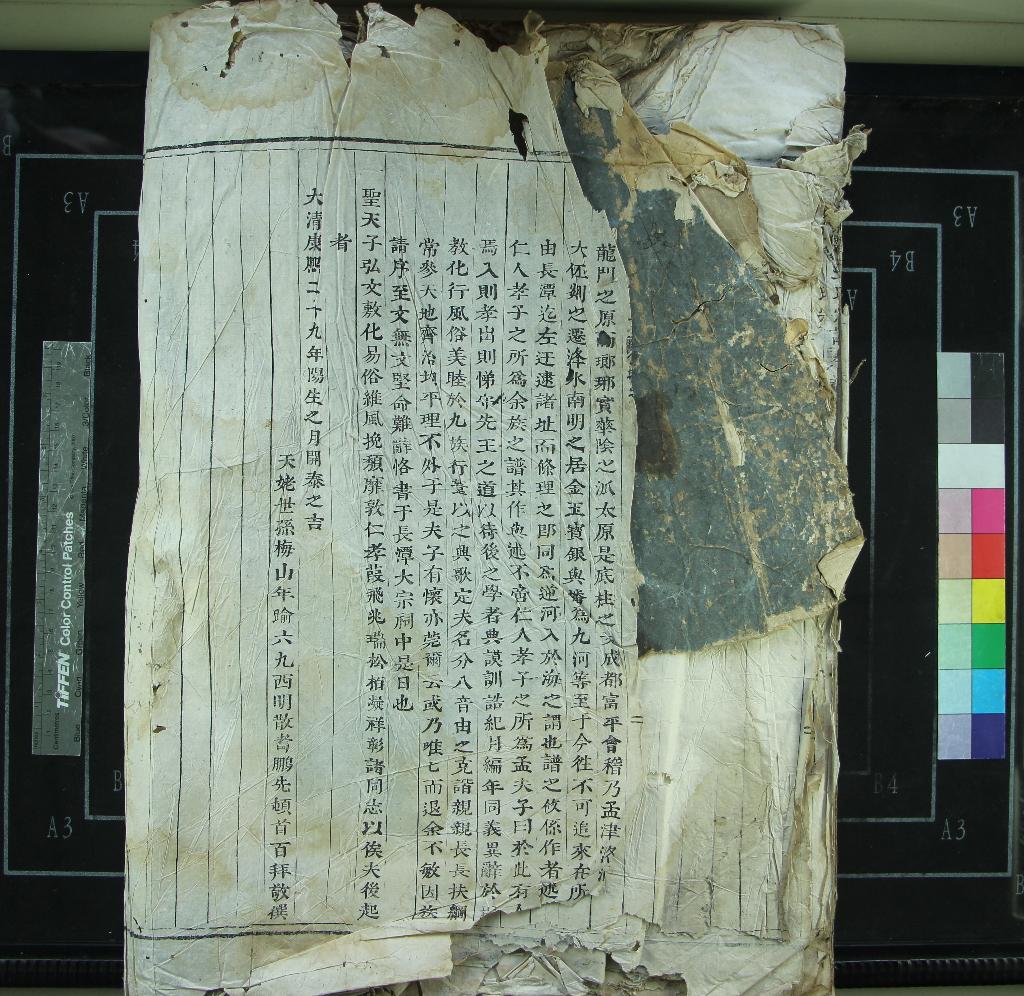 龍門之原瑯琊實華陰之派太原是底柱之文成都富平會稽乃孟津洛
大伾荆之遷洛水南明之居金玉寶銀與 為九河等至于今徃不可追來在所
由長潭迄左迂逮諸址而條理之即同為逆河入於海之謂也譜之攸係作者述
仁人孝子之所為余族之譜其作與述不啻仁人孝子之所為孟夫子曰於此有人
焉入則孝出則悌守先王之道以待後之學者典謨訓誥紀月編年同義異辭於
教化行風俗美睦於九族行葦以之興歌定夫名分八音由之克諧親親長長扶綱
常參天地齊治均平理不外于是夫子有懷亦莞爾云或乃唯七而退余不敏因族
請序至文無文堅命難辭恪書于長潭大宗祠中是日也
聖天子弘文敷化易俗維風挽頹靡敦仁孝葭飛兆瑞松栢凝祥彰諸同志以俟夫後起
者
大清康熙二十九年陽生之月開泰之吉
天姥世孫梅山年踰六九西明散耆鵬先頓首百拜敬撰
TIFFEN Color Control Patches
A3
A3
B4
B4
A3
A3